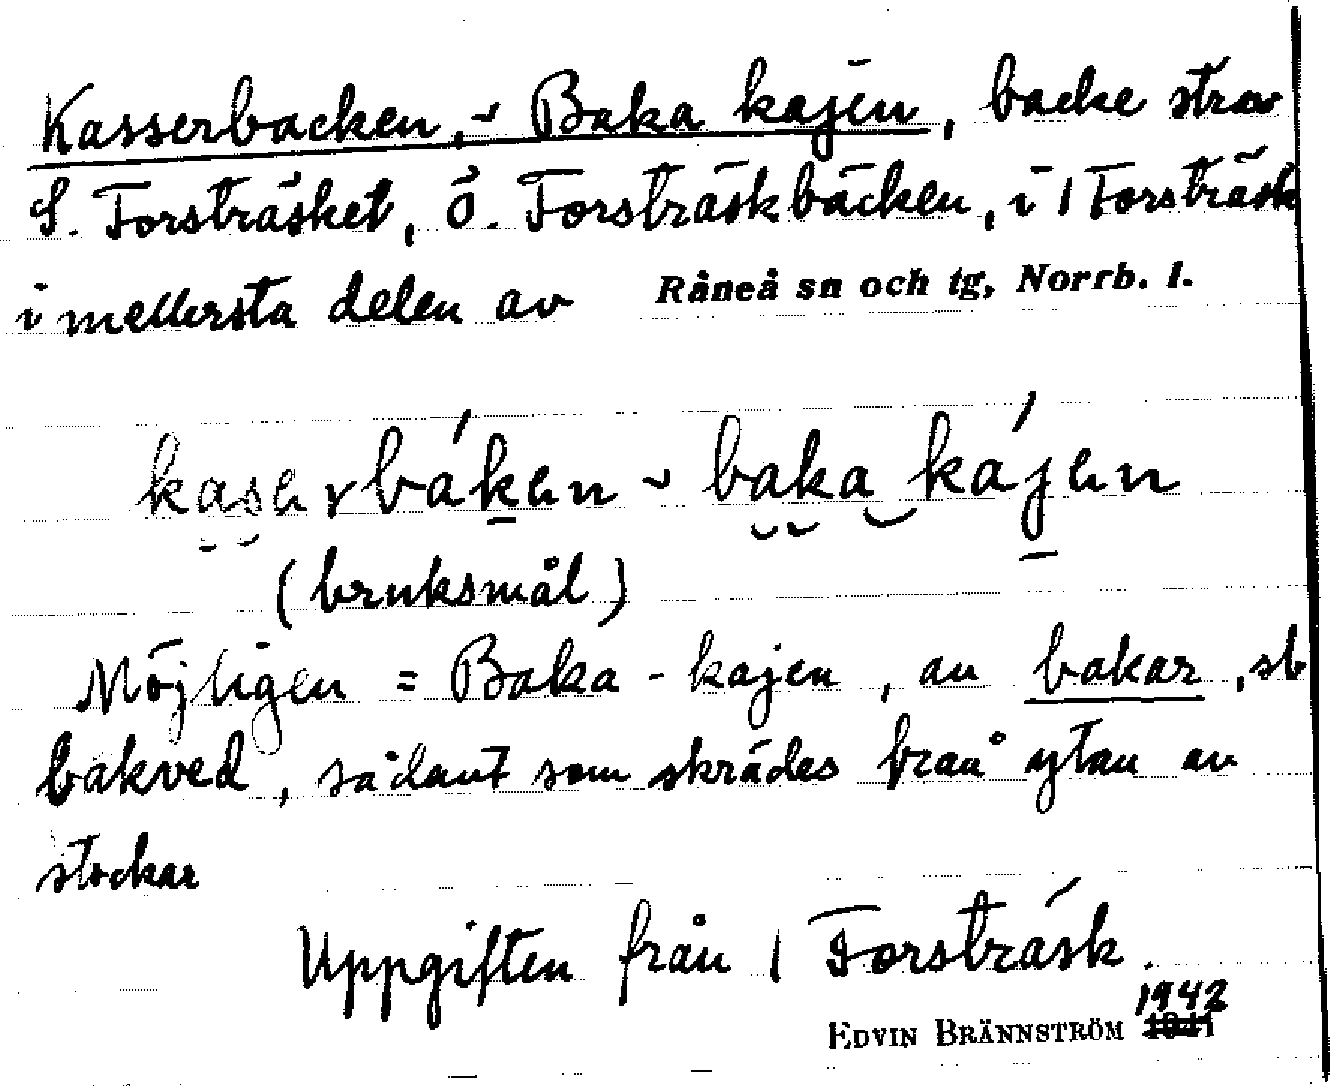 Kasserbacken, ~ Baka kajen, backe strax
S. Forsträsket, Ö. Forsträskbäcken, i 1 Forsträsk
i mellersta delen av Råneå sn och tg, Norrb. l.
kaserbáken ~ baka kájen
(bruksmål)
Möjligen = Baka-kajen, av bakar, sb
bakved, sådant som skrädes från ytan av
stockar
Uppgiften från 1 Forsträsk.
1942
EDVIN BRÄNNSTRÖM 1941